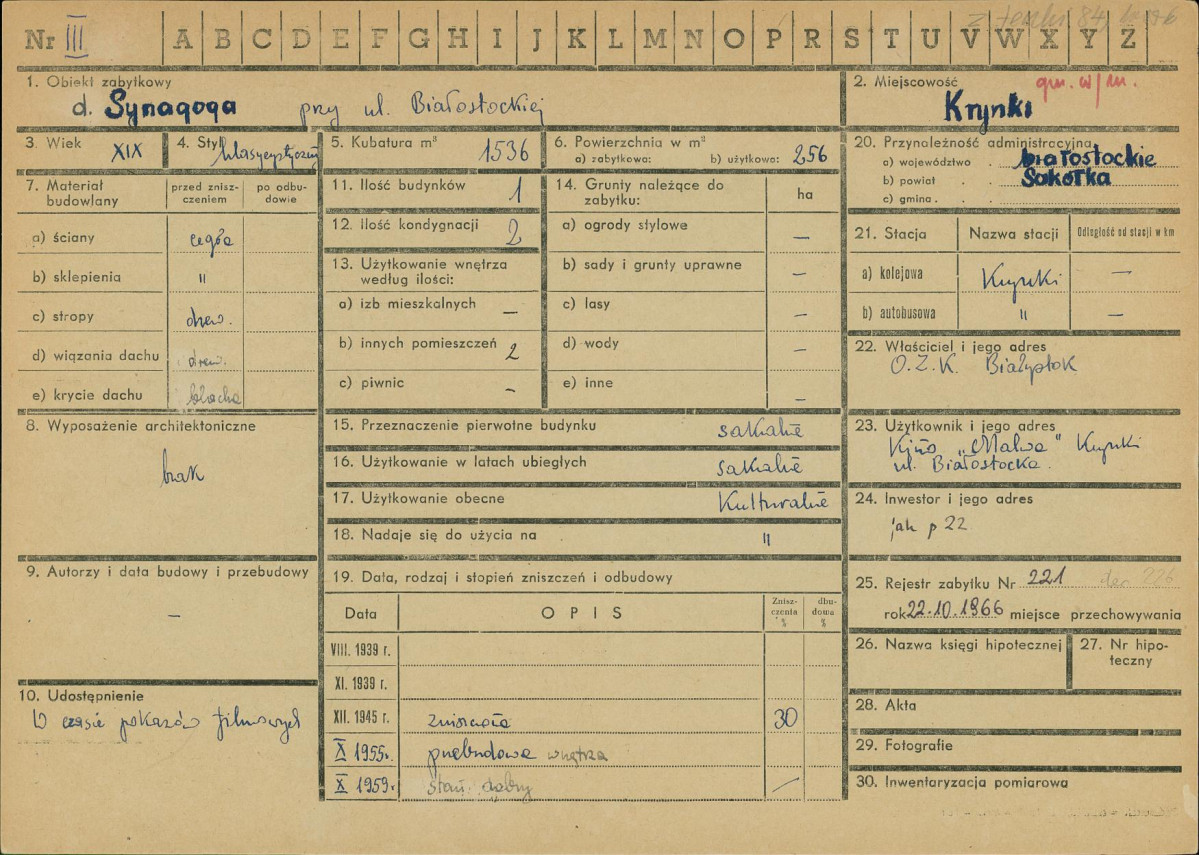 z teczki 84
Nr III A B C D E F G H I J K L M N O P R S T U V W X Y Z
1. Obiekt zabytkowy
d. Synagoga przy ul. Białostockiej
2. Miejscowość gm. w/m.
Krynki
3. Wiek XIX
4. Styl klasycystyczny
5. Kubatura m³ 1536
6. Powierzchnia w m²
a) zabytkowa: b) użytkowa: 256
7. Materiał budowlany
przed zniszczeniem
po odbudowie
a) ściany cegła
b) sklepienia "
c) stropy drew.
d) wiązania dachu drew.
e) krycie dachu blacha
8. Wyposażenie architektoniczne
brak
9. Autorzy i data budowy i przebudowy
—
10. Udostępnienie
W czasie pokazów filmowych
11. Ilość budynków 1
12. Ilość kondygnacji 2
13. Użytkowanie wnętrza
według ilości:
a) izb mieszkalnych —
b) innych pomieszczeń 2
c) piwnic -
14. Grunty należące do
zabytku:
ha
a) ogrody stylowe —
b) sady i grunty uprawne —
c) lasy —
d) wody —
e) inne —
15. Przeznaczenie pierwotne budynku sakralne
16. Użytkowanie w latach ubiegłych sakralne
17. Użytkowanie obecne Kulturalne
18. Nadaje się do użycia na "
19. Data, rodzaj i stopień zniszczeń i odbudowy
Data OPIS Zniszczenia % dbudowa %
VIII. 1939 r.
XI. 1939 r.
XII. 1945 r. zniszczoła 30
X 1955r. przebudowa wnętrza
X 1959r. stan dobry /
20. Przynależność administracyjna
a) województwo . białostockie
b) powiat . . Sokółka
c) gmina . .
21. Stacja Nazwa stacji Odległość od stacji w km
a) kolejowa Krynki —
b) autobusowa " —
22. Właściciel i jego adres
O.Z.K. Białystok
23. Użytkownik i jego adres
Kino „Malwa" Krynki
ul. Białostocka.
24. Inwestor i jego adres
jak p 22
25. Rejestr zabytku Nr 221 226
rok 22.10.1966 miejsce przechowywania
26. Nazwa księgi hipotecznej
27. Nr hipoteczny
28. Akta
29. Fotografie
30. Inwentaryzacja pomiarowa